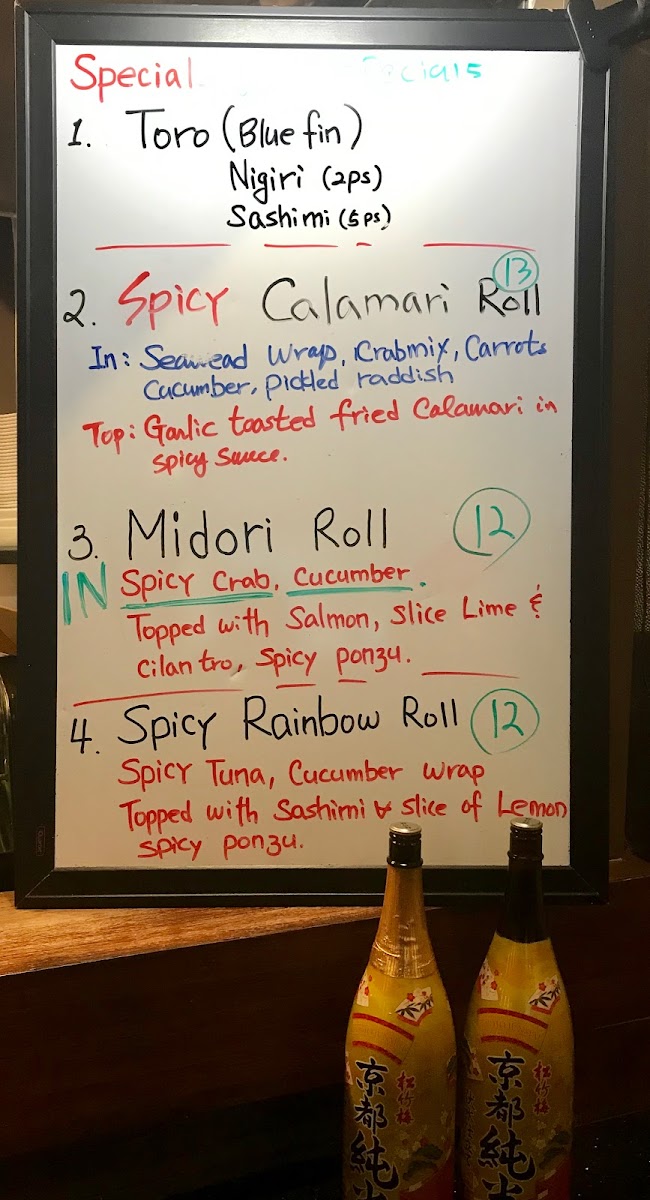 Special
1. Toro (Blue fin)
Nigiri (2ps)
Sashimi (5ps)
2. Spicy Calamari Roll 13
In: Seawead Wrap, Crabmix, Carrots
Cucumber, Pickled raddish
Top: Garlic toasted fried Calamari in
spicy sauce.
3. Midori Roll 12
IN Spicy Crab, Cucumber.
Topped with Salmon, Slice Lime &
cilantro, spicy ponzu.
4. Spicy Rainbow Roll 12
Spicy Tuna, Cucumber wrap
Topped with Sashimi & slice of Lemon
spicy ponzu.
松竹梅
京都純米
松竹梅
京都純米